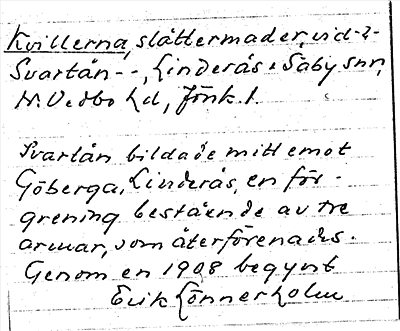 Kvillerna, slåttermader, vid -?-
Svartån --, Linderås & Säby snr,
N. Vedbo hd, Jönk. l.
Svartån bildade mitt emot
Göberga, Linderås, en för-
grening bestående av tre
armar, som återförenades.
Genom en 1908 begynt
Erik Lönnerholm